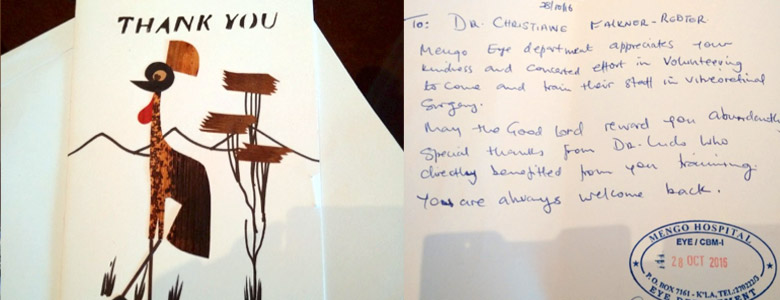 THANK YOU
28/10/16
To: DR. CHRISTIANE FALKNER-RADTER
Mengo Eye department appreciates your
kindness and concerted effort in Volunteering
to come and train their staff in vitreoretinal
Surgery.
May the Good Lord reward you abundantly
Special thanks from DR. Ludo Who
directly benefitted from your training.
You are always welcome back.
MENGO HOSPITAL
EYE / CBM-I
28 OCT 2016
P. O. BOX 7161 - K'LA, TEL:
EYE DEPARTMENT